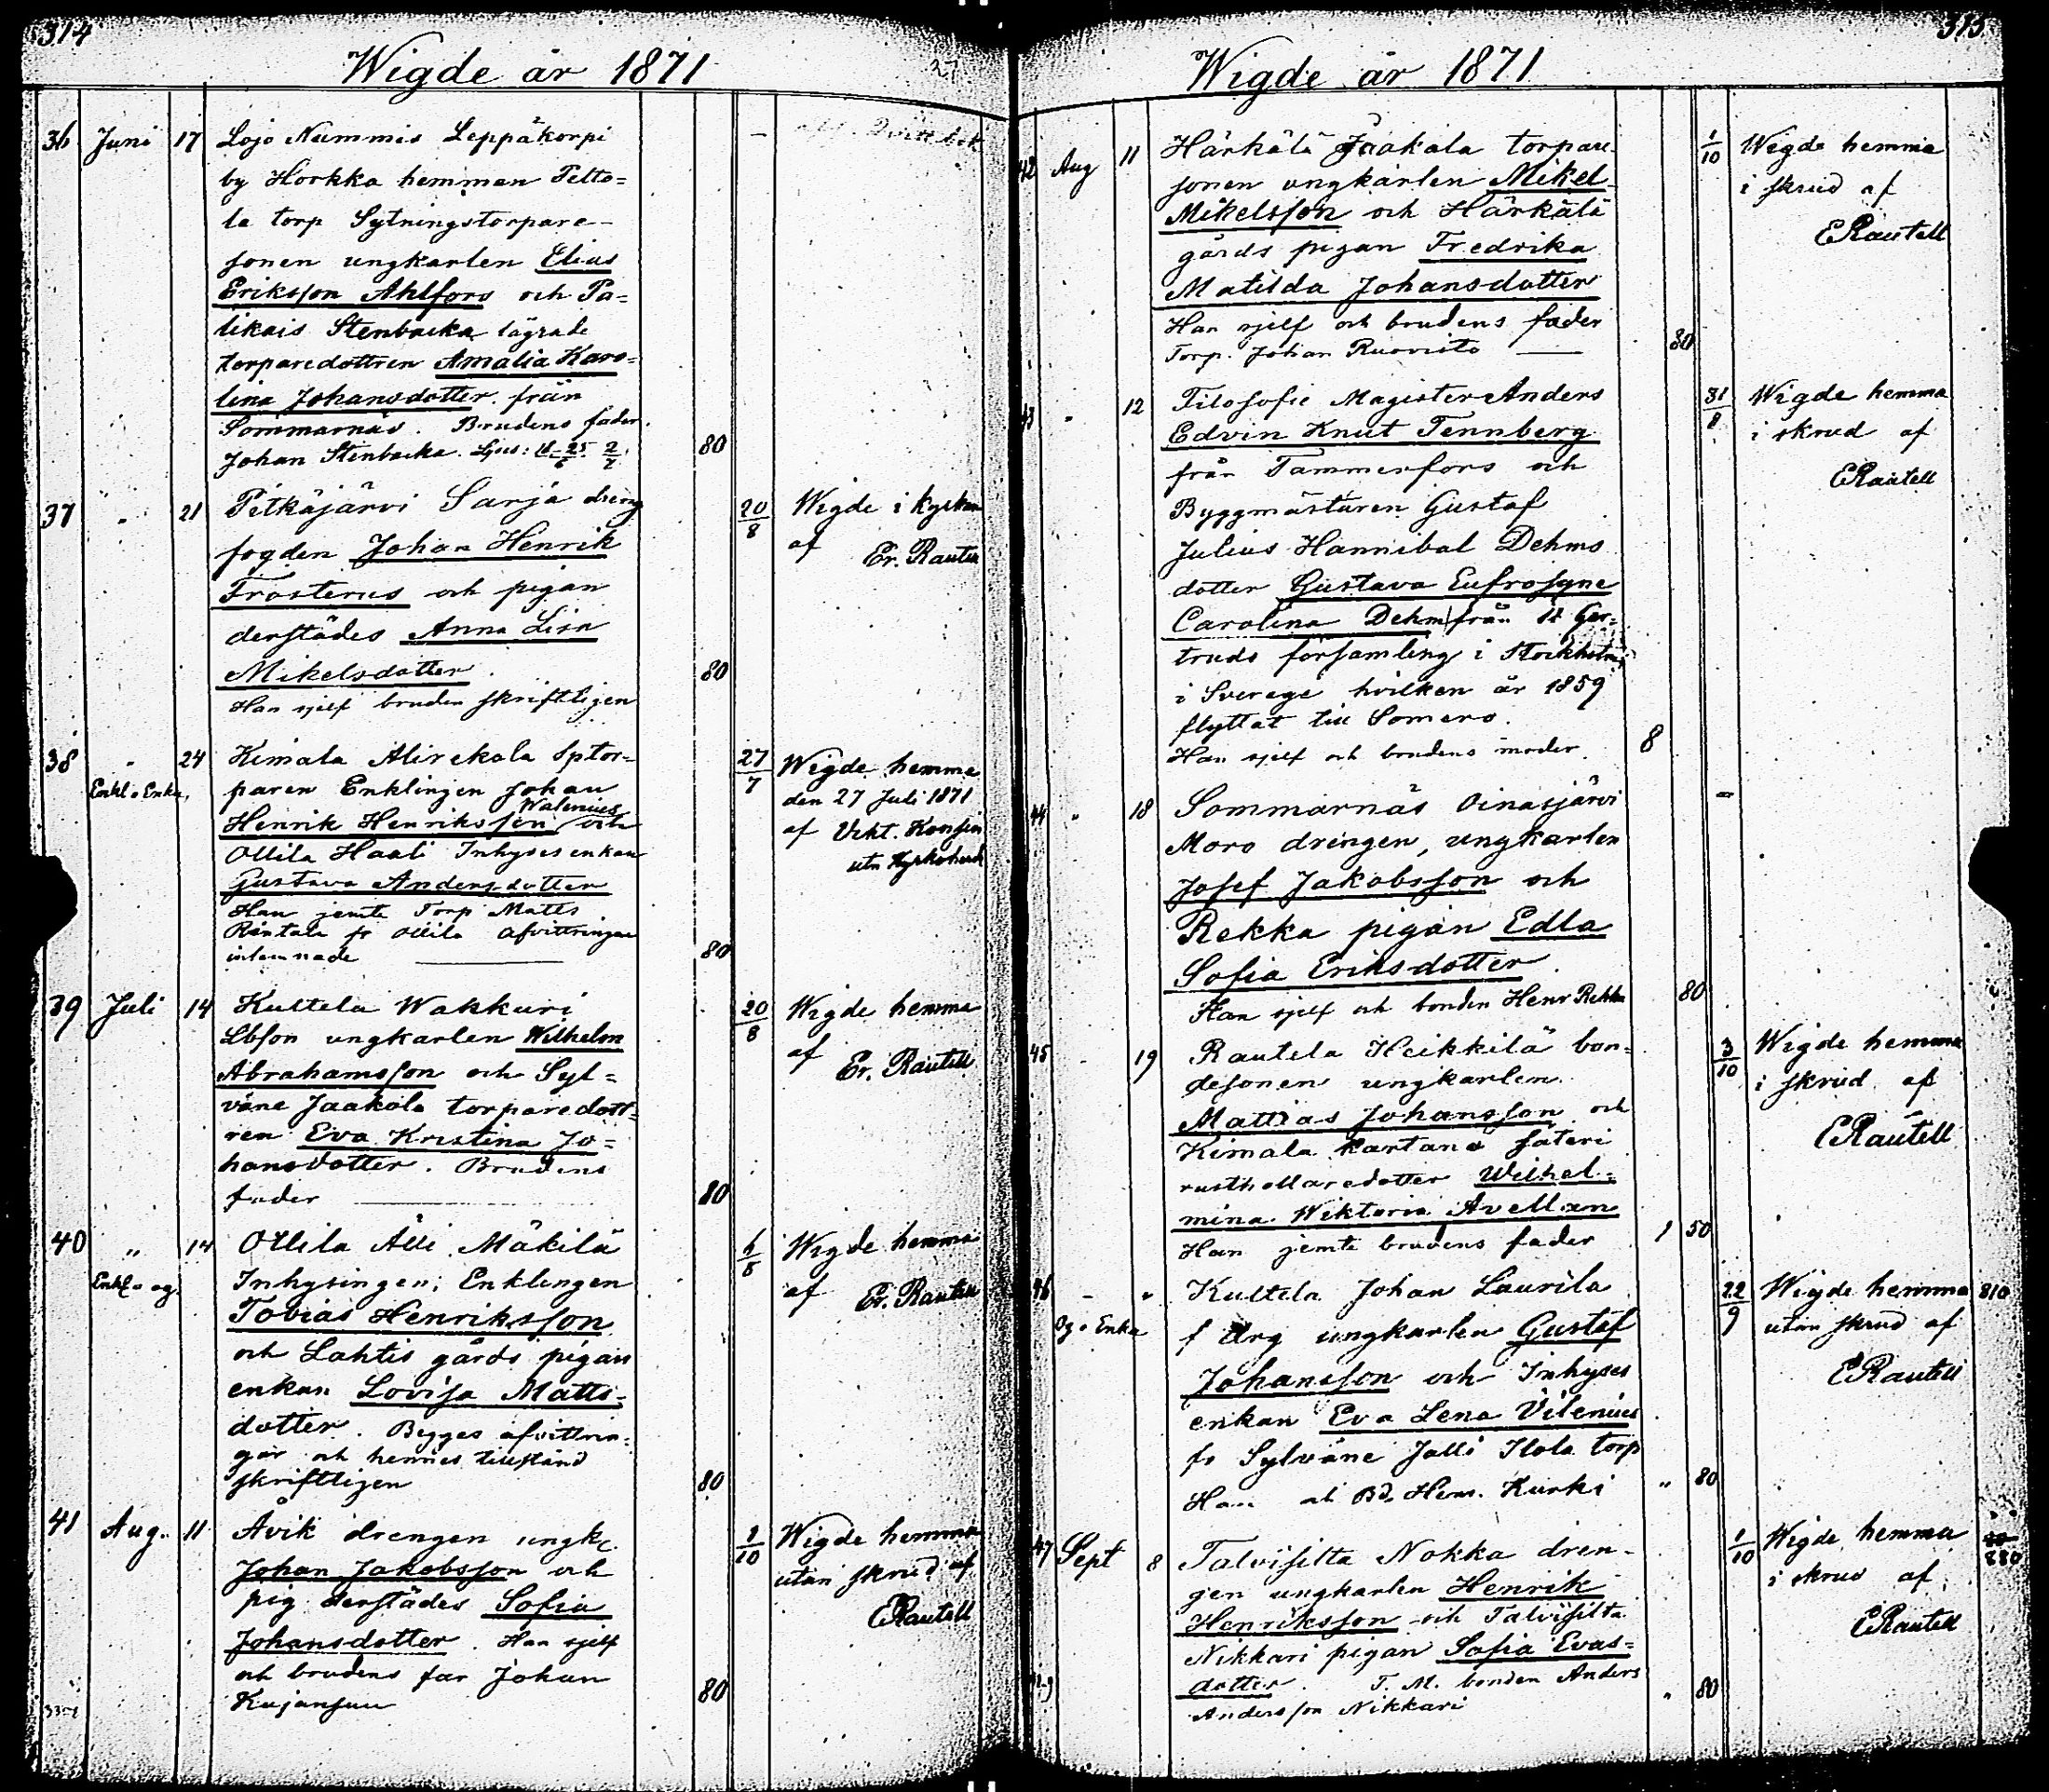 314
Wigde år 1871
27
36 Juni 17 Lojo Nummis Leppäkorpi
by Horkka hemman Pelto=
la torp Sytningstorpare-
sonen ungkarlen Elias
Eriksson Ahlfors och Pa=
likais Stenbacka lägrade
torparedottren Amalia Karo=
lina Johansdotter från
Sommarnäs. Brudens fader
Johan Stenbacka. Lyses: 18-25/6 2/7. 80
37 " 21 Pitkäjärvi Sarja dreng
fogden Johan Henrik
Frosterus och pigan
derstädes Anna Lisa
Mikelsdotter. 80
Han sjelf bruden skriftligen
20/8 Wigde i kyrkan
af Er. Rautell
38 " 24 Kimala Alirekola Sptor=
Enkl. o Enka, paren Enklingen Johan
Walenius
Henrik Henriksson och
Ollila Haali Inhyses enkan
Gustava Andersdotter
Han jemte Torp Matts
Räntälä fr Ollila afvittringar
inlemnade 80
27/7 Wigde hemma
den 27 Juli 1871
af Vikt. Konsin
utn Kyrkoherd
39 Juli 14 Kultela Wakkuri
Lbson ungkarlen Wilhelm
Abrahamsson och Syl=
väne Jaakola torparedott=
ren Eva Kristina Jo=
hansdotter. Brudens
fader 80
20/8 Wigde hemma
af Er. Rautell
40 " 14 Ollila Alli Mäkilä
Enkl o og. Inhysingen; Enklingen
Tobias Henriksson
och Lahtis gårds pigan
enkan Lovisa Matts=
dotter. Begges afvittrin=
gar och hennes tillstånd
skriftligen 80
6/8 Wigde hemma
af Er. Rautell
41 Aug. 11 Åvik drengen ungk.
Johan Jakobsson och
pig derstädes Sofia
Johansdotter. Han sjelf
och brudens far Johan
Kujansuu 80
1/10 Wigde hemma
utan skrud af
ERautell
315
Wigde år 1871
42 Aug 11 Härkälä Jaakola torpare
sonen ungkarlen Mikel
Mikelsson och Härkälä
gårds pigan Fredrika
Matilda Johansdotter
Han sjelf och brudens fader
Torp. Johan Ruovisto 80
1/10 Wigde hemma
i skrud af
ERautell
43 " 12 Filosofie Magister Anders
Edvin Knut Tennberg
från Tammerfors och
Byggmästaren Gustaf
Julius Hannibal Dehms
dotter Gustava Eufrosyne
Carolina Dehm från St Ger=
truds församling i Stockholm
i Sverege hvilken år 1859
flyttat till Somero.
Han sjelf och brudens moder 8
31/8 Wigde hemma
i skrud af
ERautell
44 " 18 Sommarnäs Oinasjärvi
Moro drengen, ungkarlen
Josef Jakobsson och
Rekka pigan Edla
Sofia Eriksdotter.
Han sjelf och bonden Henr Rekka 80
45 " 19 Rautela Heikkilä bon=
desonen ungkarlen
Mattias Johansson och
Kimala kartano säteri
rusthollaredotter Wilhel=
mina Wiktoria Avellan
Han jemte brudens fader 1 50
3/10 Wigde hemma
i skrud af
ERautell
46 " " Kultela Johan Laurila
Og. o Enka f drg ungkarlen Gustaf
Johansson och Inhyses
enkan Eva Lena Vilenius
fr Sylväne Jalli Ilola torp
Han och Bd. Hem. Kurki " 80
22/9 Wigde hemma 810
utan skrud af
ERautell
47 Sept 8 Talvisilta Nokka dren-
gen ungkarlen Henrik
Henriksson och Talvisilta
Nikkari pigan Sofia Evas=
dotter. T. M. bonden Anders
Andersson Nikkari " 80
1/10 Wigde hemma
i skrud af 880
ERautell